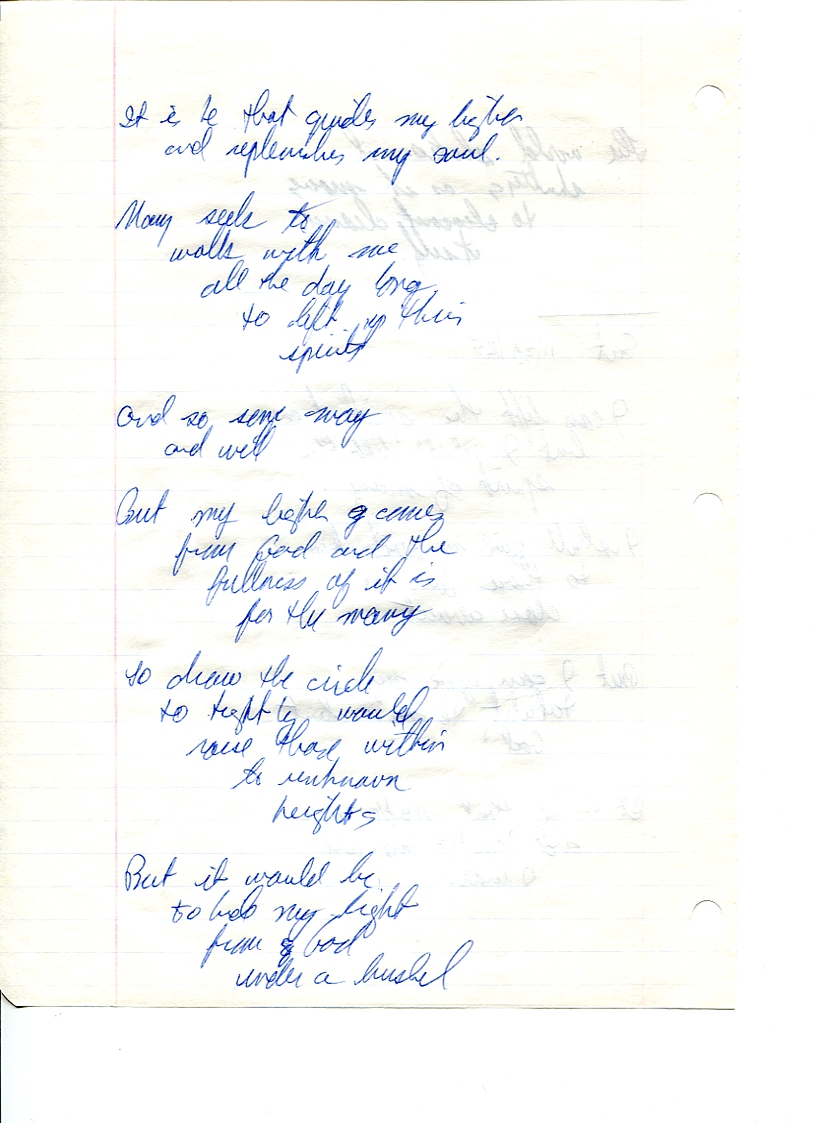 It is he that guides my
and replenishes my soul.
Many seek to
walk with me
all the day long
to lift up their
spirits
And so some may
and will
But my comes
from God and the
fullness of it is
for the many
So draw the circle
to tightly would
raise those within
to unknown
heights
But it would be
to my light
from God
under a bushel